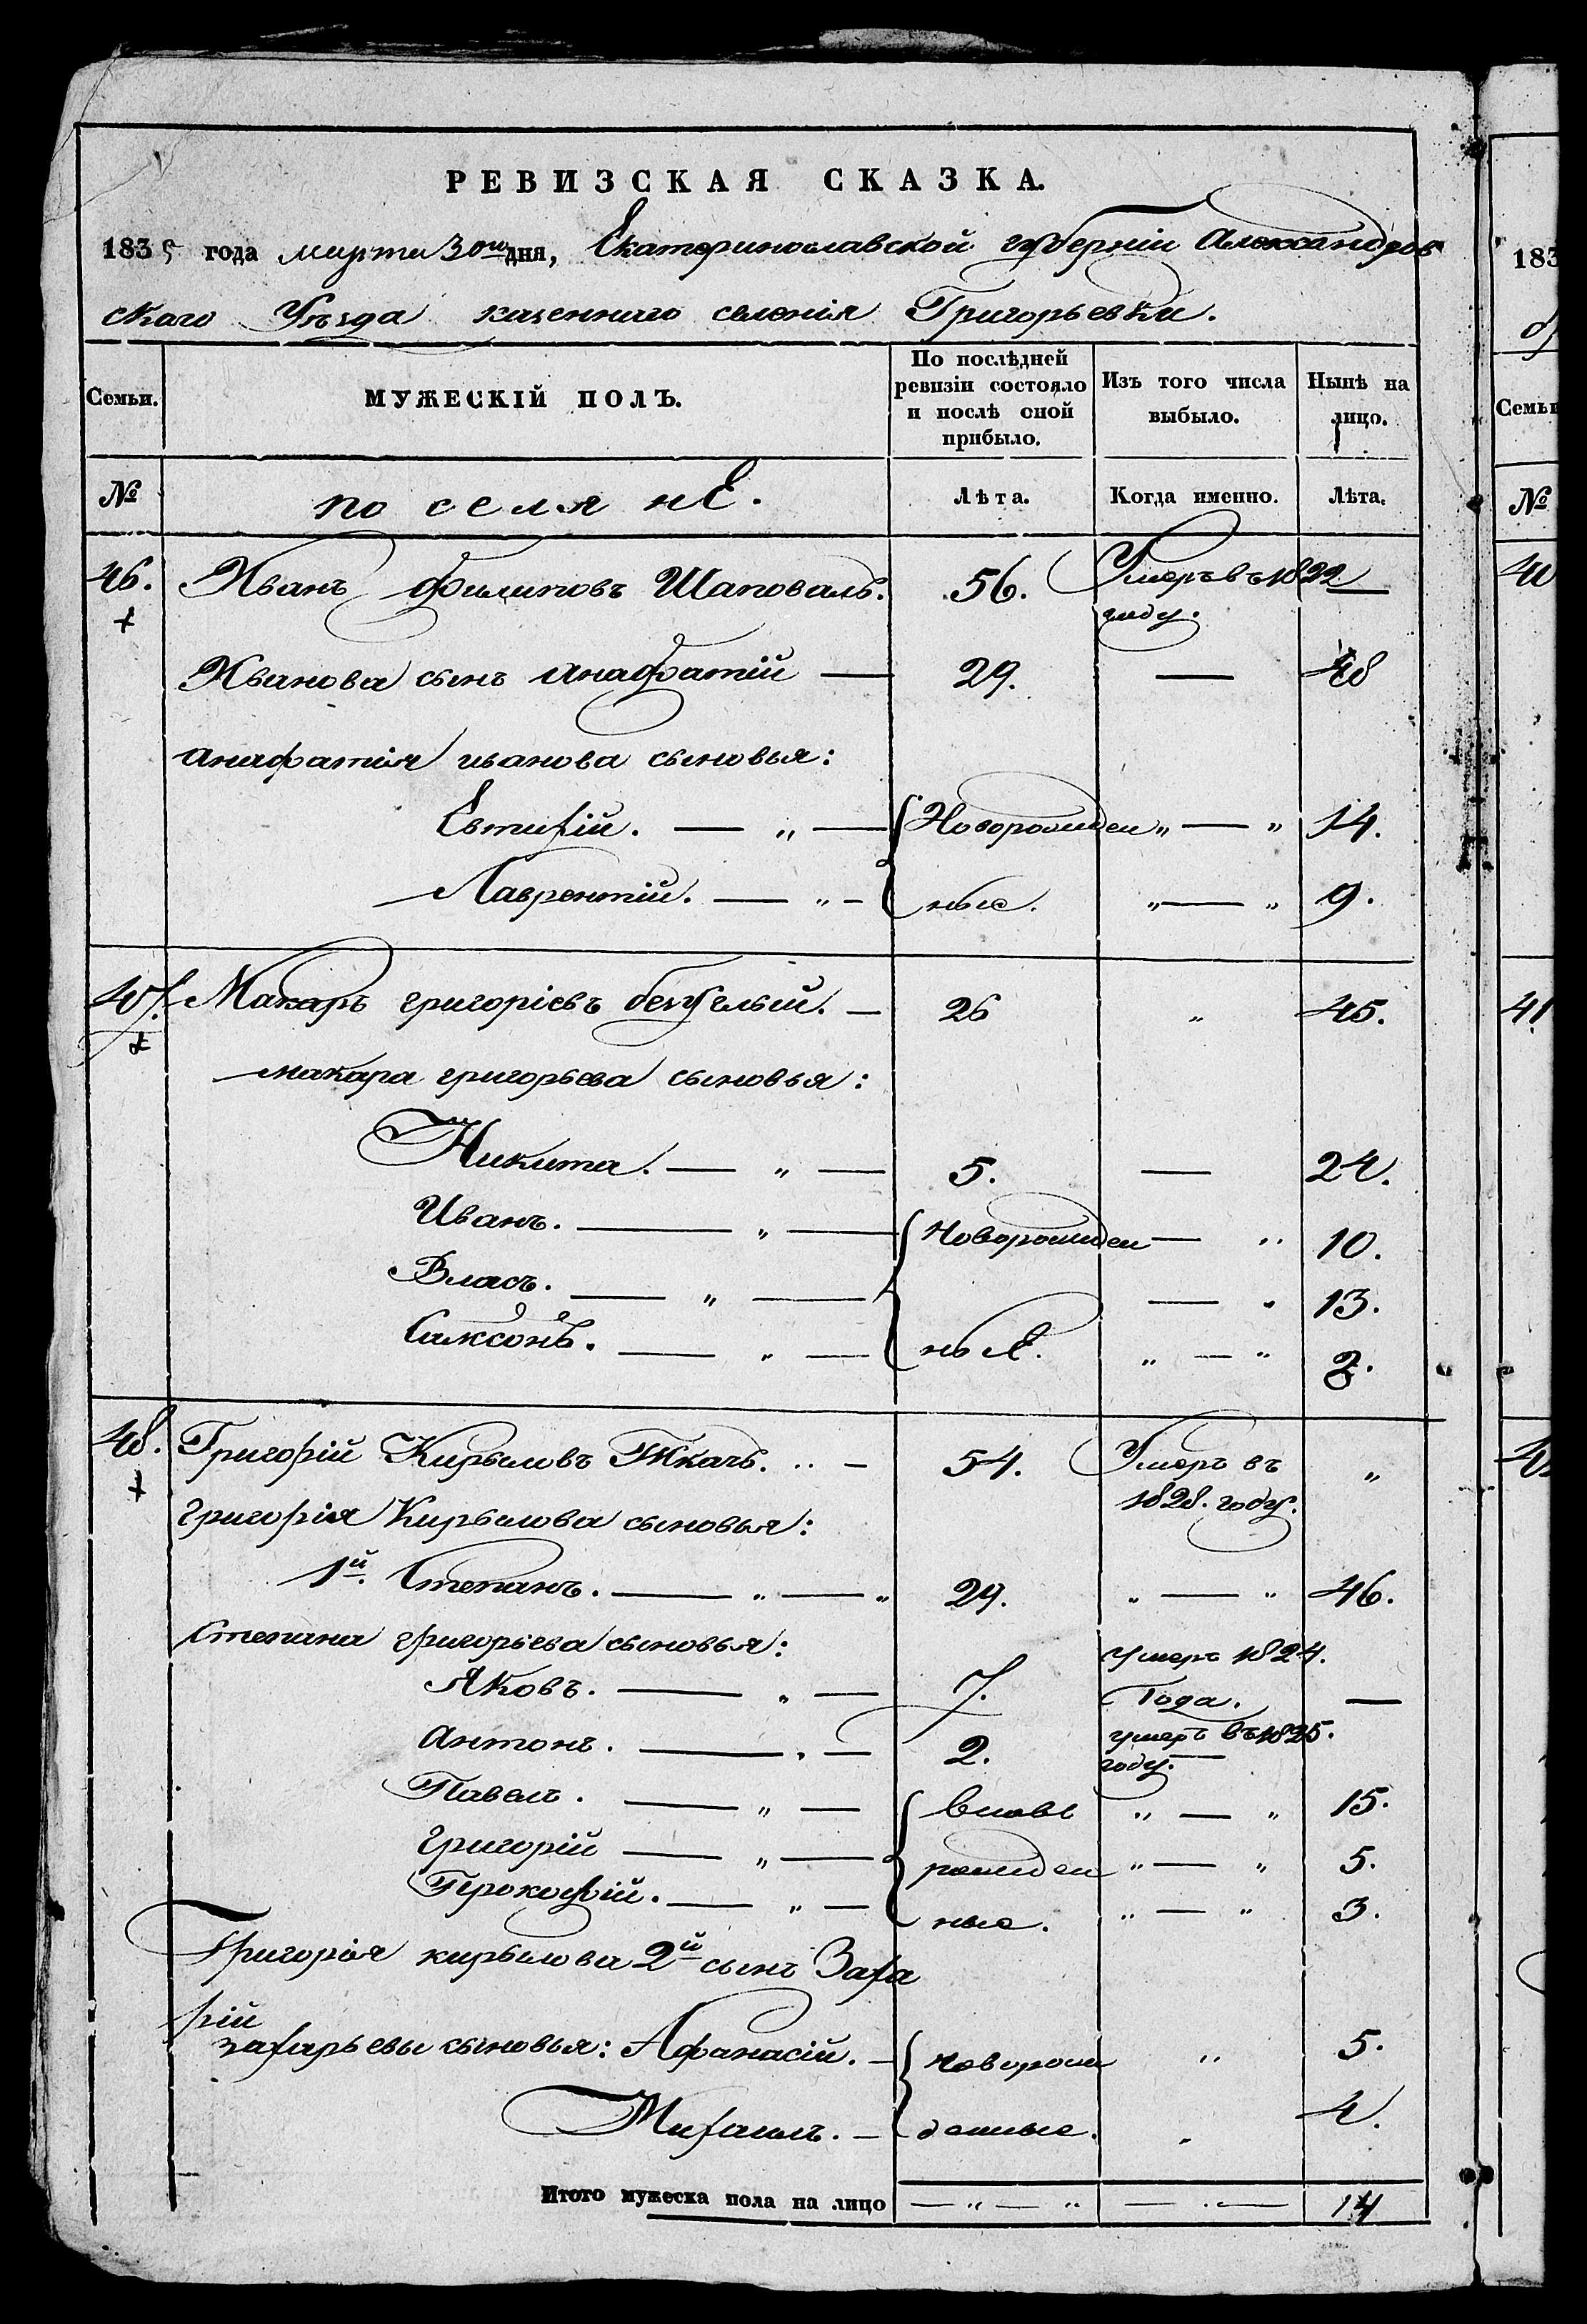 РЕВИЗСКАЯ СКАЗКА.
1835 года марта 30го дня, Екатеринославской губерніи Александров
скаго Уѣзда казеннаго селенія Григорьевки.
Семьи.
МУЖЕСКІЙ ПОЛЪ.
По послѣдней
ревизіи состояло
и послѣ оной
прибыло.
Изъ того числа
выбыло.
Нынѣ на
лицо.
№ поселянЕ. Лѣта. Когда именно. Лѣта.
46. Иванъ Филиповъ Шаповалъ. 56. Умеръ въ 1822 —
году.
Иванова сынъ Анафатій — 29. — 48
Анафатія иванова сыновья:
Евтихій. — „ — Новорожден „ — „ 14.
Лаврентій. — „ — ные. „ — „ 9.
47. Макаръ григоріевъ безуглый. — 26 „ 45.
макара григорьева сыновья:
Никита. — „ — 5. — 24.
Иванъ. — „ — Новорожден — „ 10.
Власъ. — „ — — „ 13.
Самсонъ. — „ — ныЕ. „ — „ 2.
48. Григорій Кирыловъ Ткачъ. „ — 54. Умеръ въ „
1828. году.
григорія Кирылова сыновья:
1й. Степанъ. — „ — „ 29. „ — „ 46.
Степана григорьева сыновья:
Яковъ. — „ — 7. умеръ 1824. —
Года.
Антонъ. — „ — 2. умеръ въ 1825.
году. —
Павелъ. — „ — вновь „ — „ 15.
григорій — „ — рожден „ — „ 5.
Прокофій. — „ — ные. „ — „ 3.
Григорія кирылова 2й сынъ Заха
рій
захарьевы сыновья: Афанасій. — новорож „ 5.
Михаилъ. — денные. „ 4.
Итого мужеска пола на лицо — „ — „ — „ — 14
183
Семьи
№